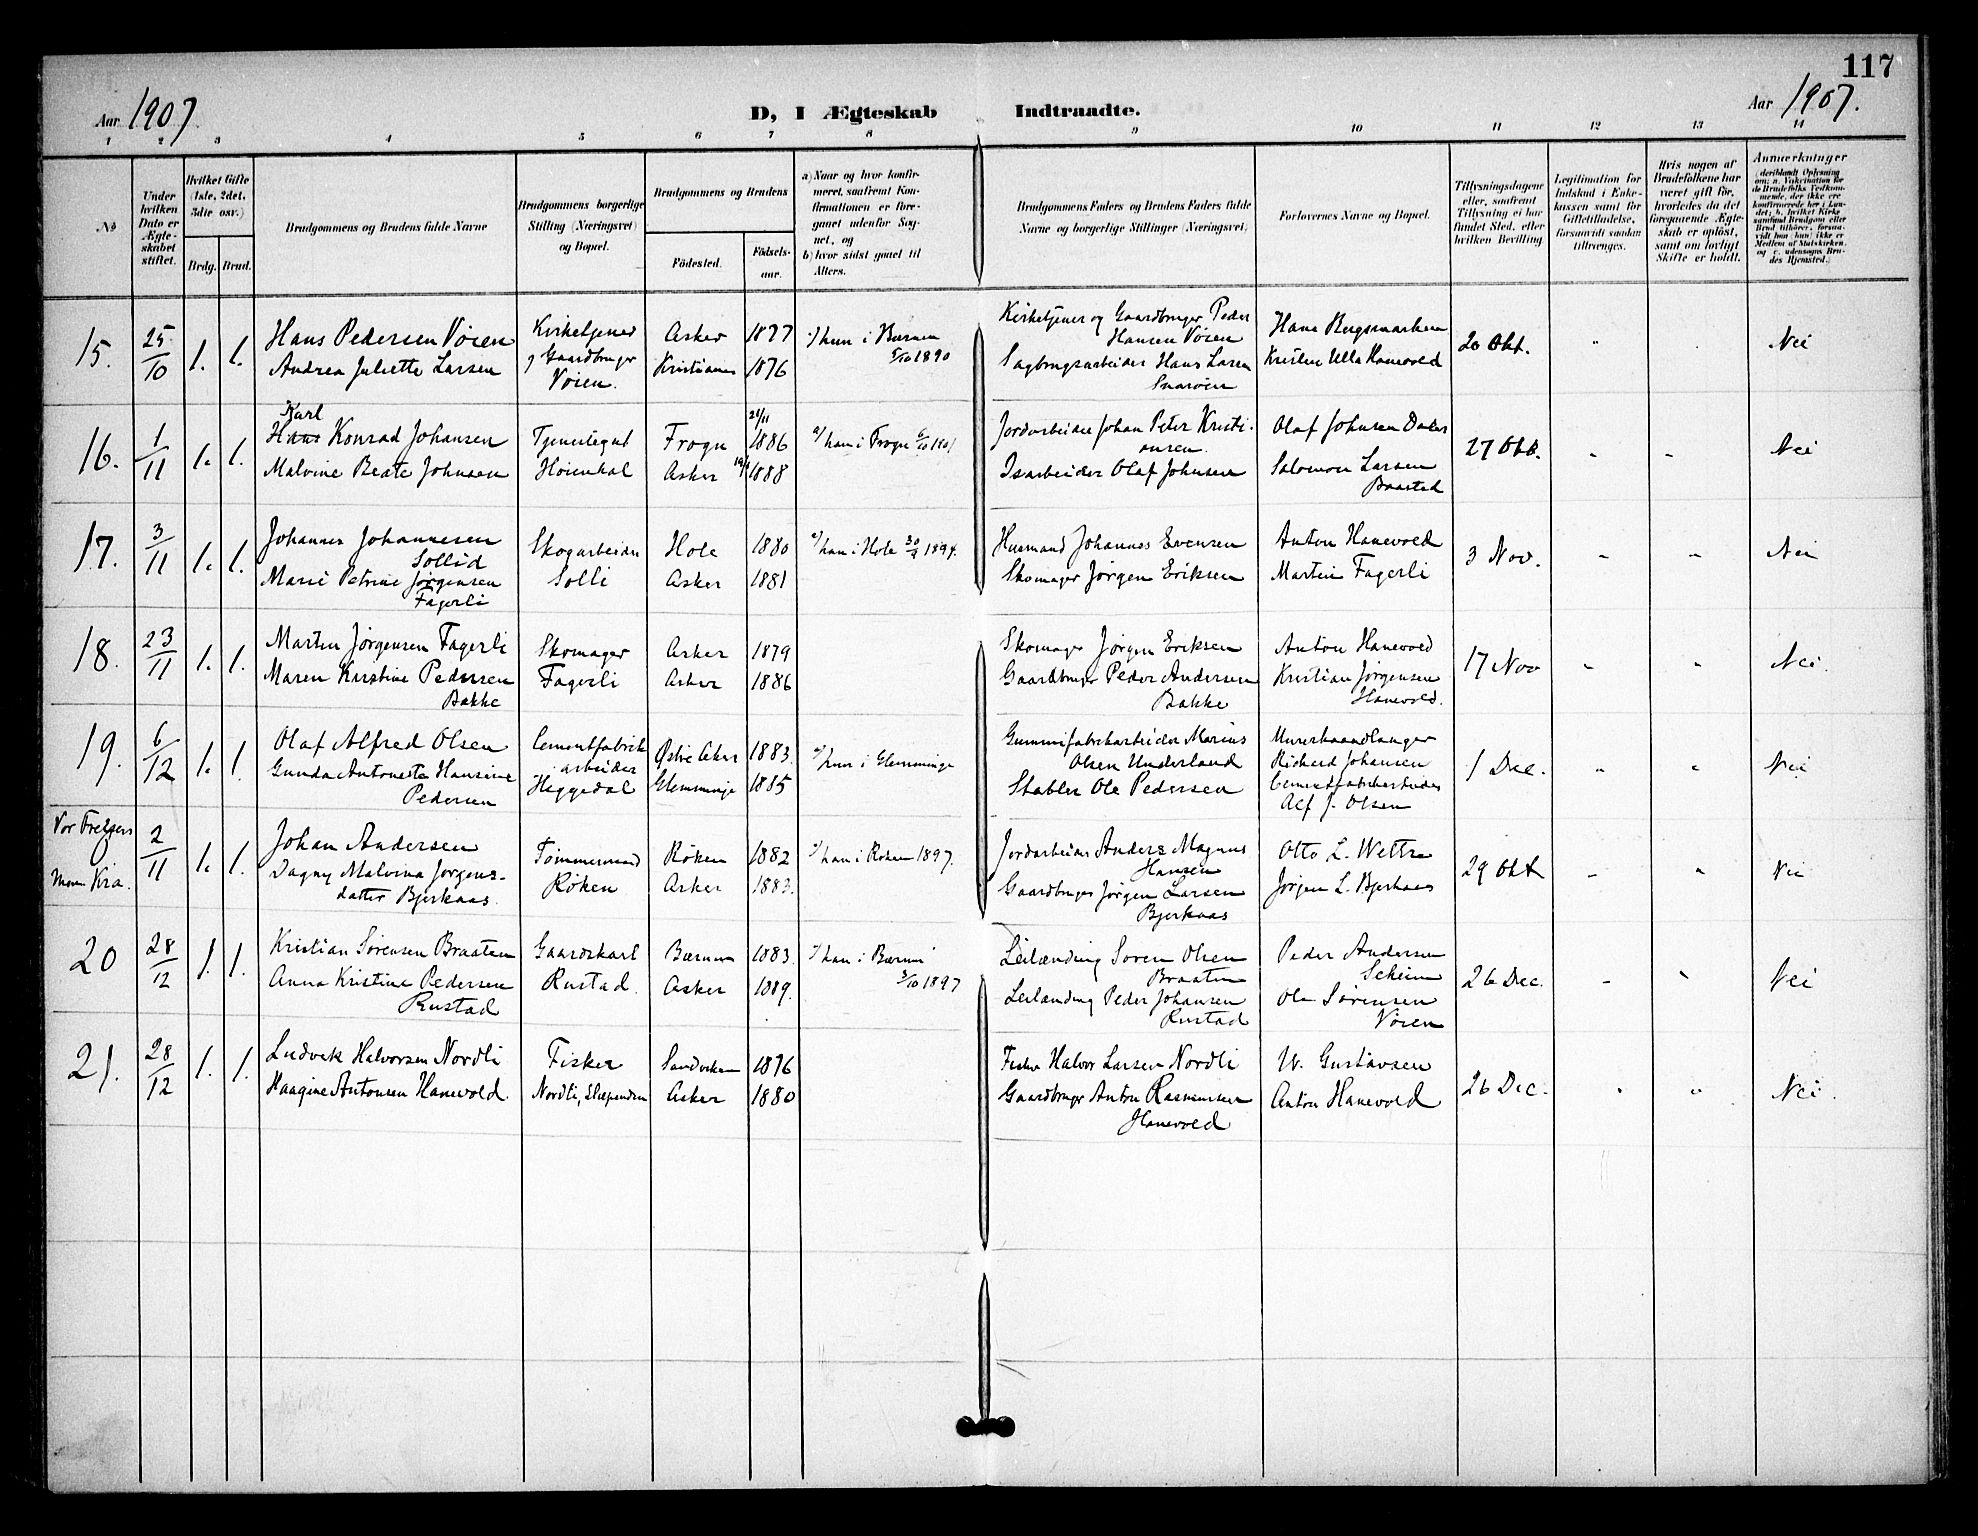 117
Aar 1907
D, I Ægteskab Indtraadte.
Aar 1907.
1 2 3 4 5 6 7 8 9 10 11 12 13 14
No
Under hvilken Dato er Ægteskabet stiftet.
Hvilket Gifte (1ste, 2det, 3die osv.)
Brdg. Brud.
Brudgommens og Brudens fulde Navne
Brudgommens borgerlige Stilling (Næringsvei) og Bopæl.
Brudgommens og Brudens
Födested.
Födselsaar.
a) Naar og hvor konfirmeret, saafremt Konfirmationen er foregaaet udenfor Sognet, og
b) hvor sidst gaaet til Alters.
Brudgommens Faders og Brudens Faders fulde Navne og borgerlige Stillinger (Næringsvei)
Forlovernes Navne og Bopæl.
Tillysningsdagene eller, saafremt Tillysning ei har fundet Sted, efter hvilken Bevilling
Legitimation for Indskud i Enkekassen samt for Giftetilladelse, forsaavidt saadan tiltrænges.
Hvis nogen af Brudefolkene har været gift för, hvorledes da det foregaaende Ægteskab er oplöst, samt om lovligt Skifte er holdt.
Anmerkninger
15. 25/10 1. 1.
Hans Pedersen Vøien
Andrea Juliette Larsen
Kirketjener
og Gaardbruger
Vøien.
Asker 1877
Kristiania 1876
hun i Bærum
5/10 1890
Kirketjener og Gaardbruger Peder
Hansen Vøien
Sagbrugsarbeider Hans Larsen
Snarøen
Hans Bergsmarken
Kristen Ulla Hanevold
20 Okt. " Nei
16. 1/11 1. 1.
Karl
Hans Konrad Johansen
Malvine Beate Johnsen
Tjenestegut
Høienhal
Frogn 21/11 1886
Asker 19/ 1888
a/ han i Frogn 6/10 1901
Jordarbeider Johan Peter Kristi-
ansen.
Isarbeider Olaf Johnsen
Olaf Johnsen
Salomon Larsen
Baastad
27 Okt. " " Nei
17. 3/11 1. 1.
Johannes Johannesen
Sollid
Marie Petrine Jørgensen
Fagerli
Skogarbeider
Solli
Hole 1880
Asker 1881
a/ han i Hole 30/9 1894.
Husmand Johannes Evensen
Skomager Jørgen Eriksen
Anton Hanevold
Martin Fagerli
3 Nov. " " Nei
18. 23/11 1. 1.
Martin Jørgensen Fagerli
Maren Kristine Pedersen
Bakke
Skomager
Fagerli
Asker 1879
Asker 1886
Skomager Jørgen Eriksen
Gaardbruger Peder Andersen
Bakke
Anton Hanevold
Kristian Jørgensen
Hanevold.
17 Nov " " Nei.
19. 6/12 1. 1.
Olaf Alfred Olsen
Gunda Antonette Hansine
Pedersen
Cementfabrik-
arbeider
Heggedal
Østre Aker 1883.
Glemminge 1885
a/ hun i Glemminge
Gummifabrikarbeider Marius
Olsen Underland
Stabler Ole Pedersen
Murerhaandlanger
Richard Johansen
Cementfabrikarbeider
Alf J. Olsen
1 Dec. " " Nei
Vor Frelsers
Kra. 2/11 1. 1.
Johan Andersen
Dagny Malvina Jørgens-
datter Bjerkaas.
Tømmermand
Røken
Røken 1882
Asker 1883.
a/ han i Røken 1897.
Jordarbeider Anders Magnus
Hansen
Gaardbruger Jørgen Larsen
Bjerkaas
Otto L. Wettre
Jørgen L. Bjerkaas
29 Okt " " Nei
20 28/12 1. 1.
Kristian Sørensen Braaten
Anna Kristine Pedersen
Rustad
Gaardskarl
Rustad.
Bærum 1883.
Asker 1889.
a/ han i Bærum
3/10 1897
Leilænding Søren Olsen
Braaten
Leilænding Peder Johansen
Rustad
Peder Andersen
Seheim
Ole Sørensen
Vøien
26 Dec. " " Nei
21. 28/12 1. 1.
Ludvik Halvorsen Nordli
Haagine Antonsen Hanevold.
Fisker
Nordli, Slependen
Sandviken 1876
Asker 1880
Fisker Halvor Larsen Nordli
Gaardbruger Anton Rasmussen
Hanevold
W. Gustavsen
Anton Hanevold
26 Dec. " " Nei.